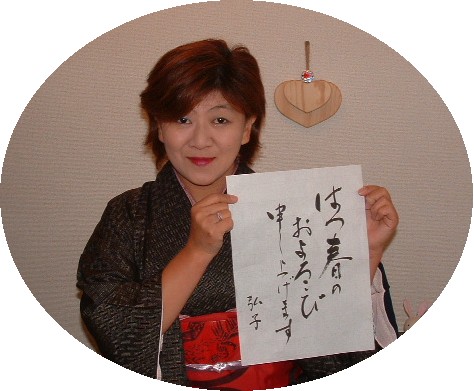 はつ春の
およろこび
申し上げます
弘子